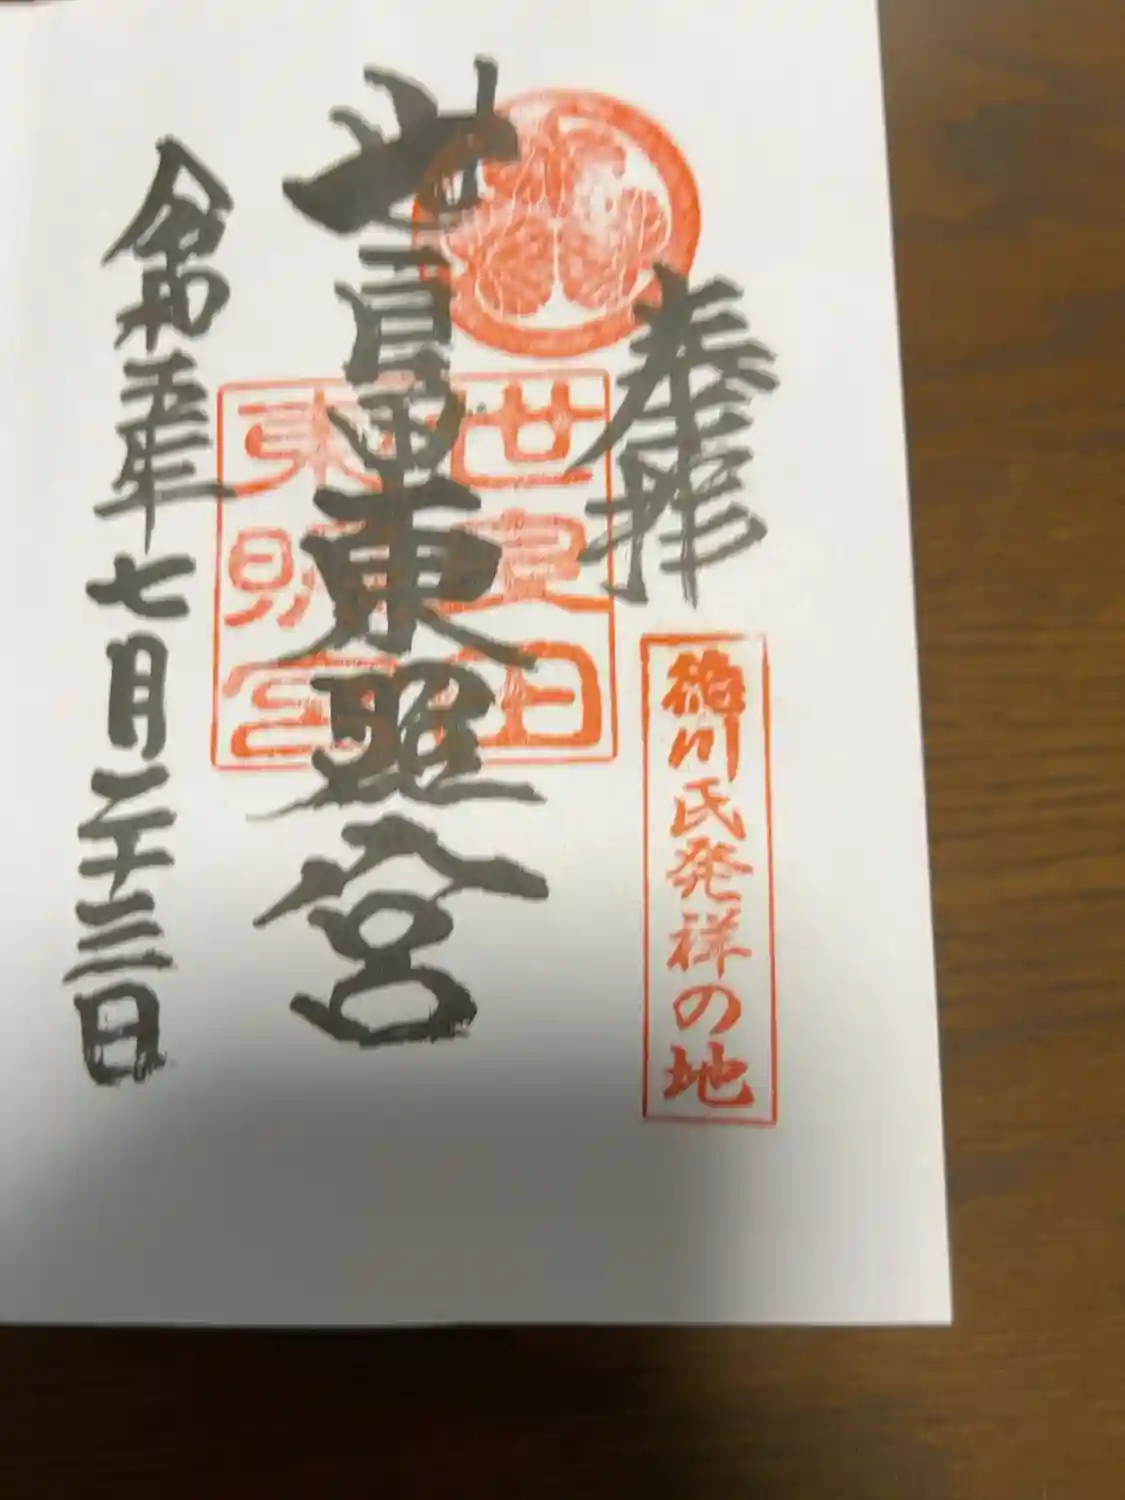 奉拝
徳川氏発祥の地
世良田東照宮
世良田
東照宮
令和五年七月二十三日